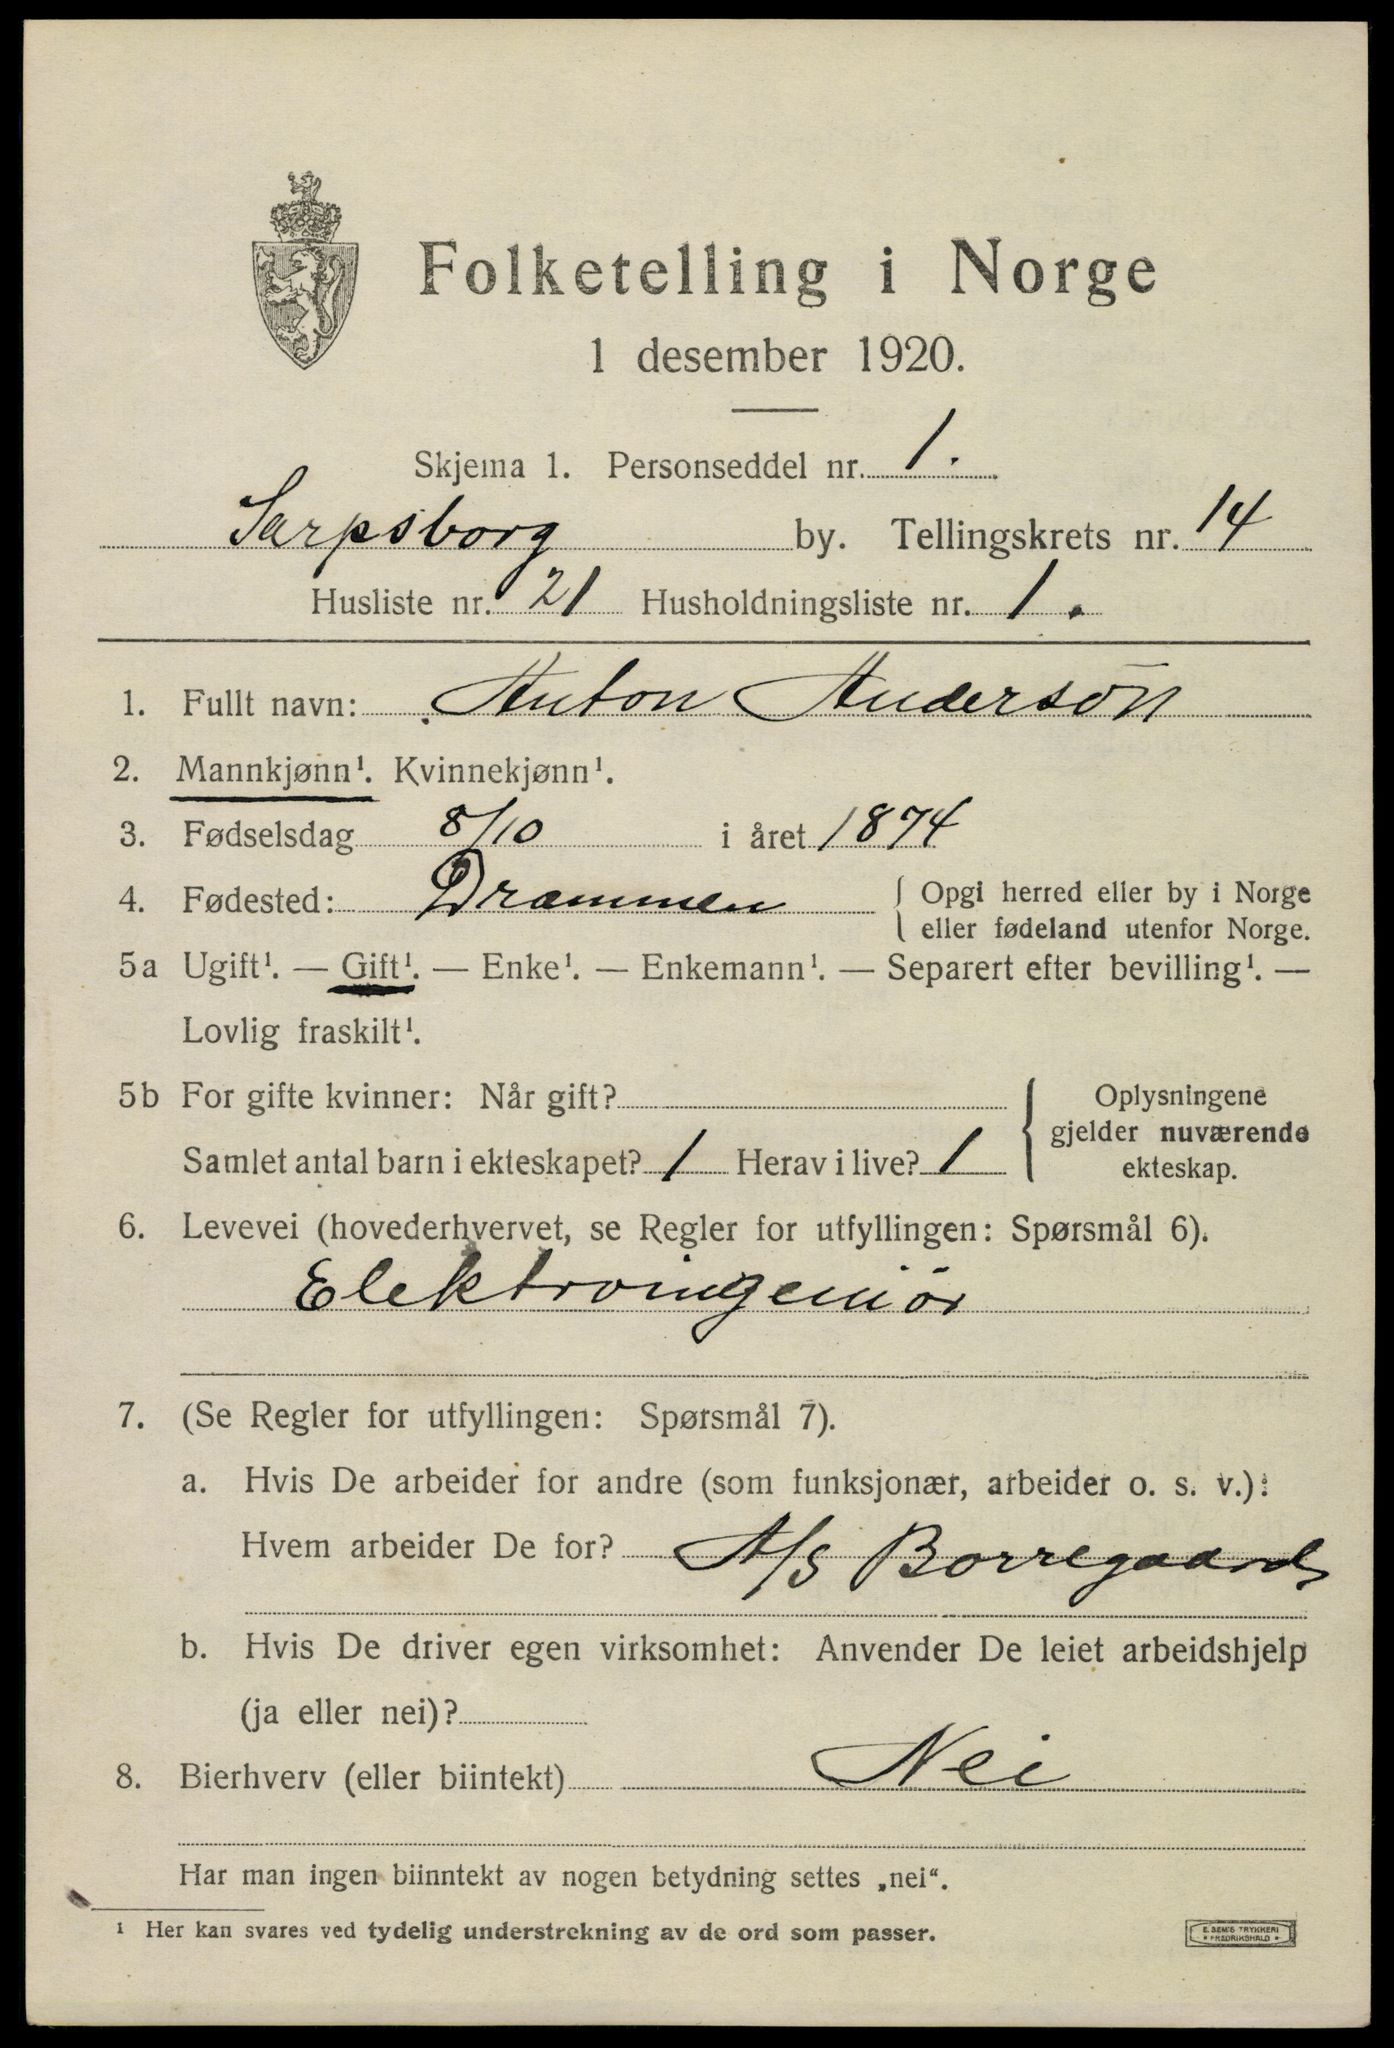 Folketelling i Norge
1 desember 1920.
Skjema 1. Personseddel nr. 1.
Sarpsborg by. Tellingskrets nr. 14
Husliste nr. 21 Husholdningsliste nr. 1.
1. Fullt navn: Anton Anderson
2. Mannkjønn¹. Kvinnekjønn¹.
3. Fødselsdag 8/10 i året 1874
4. Fødested: Drammen { Opgi herred eller by i Norge
eller fødeland utenfor Norge.
5a Ugift¹. — Gift¹. — Enke¹. — Enkemann¹. — Separert efter bevilling¹. —
Lovlig fraskilt¹.
5b For gifte kvinner: Når gift? { Oplysningene
gjelder nuværende
Samlet antal barn i ekteskapet? 1 Herav i live? 1 ekteskap.
6. Levevei (hovederhvervet, se Regler for utfyllingen: Spørsmål 6).
Elektroingeniør
7. (Se Regler for utfyllingen: Spørsmål 7).
a. Hvis De arbeider for andre (som funksjonær, arbeider o. s. v.):
Hvem arbeider De for? A/S Borregaard
b. Hvis De driver egen virksomhet: Anvender De leiet arbeidshjelp
(ja eller nei)?
8. Bierhverv (eller biintekt) Nei
Har man ingen biinntekt av nogen betydning settes „nei“.
¹ Her kan svares ved tydelig understrekning av de ord som passer.
E. SEM'S TRYKKERI
* FREDRIKSHALD *